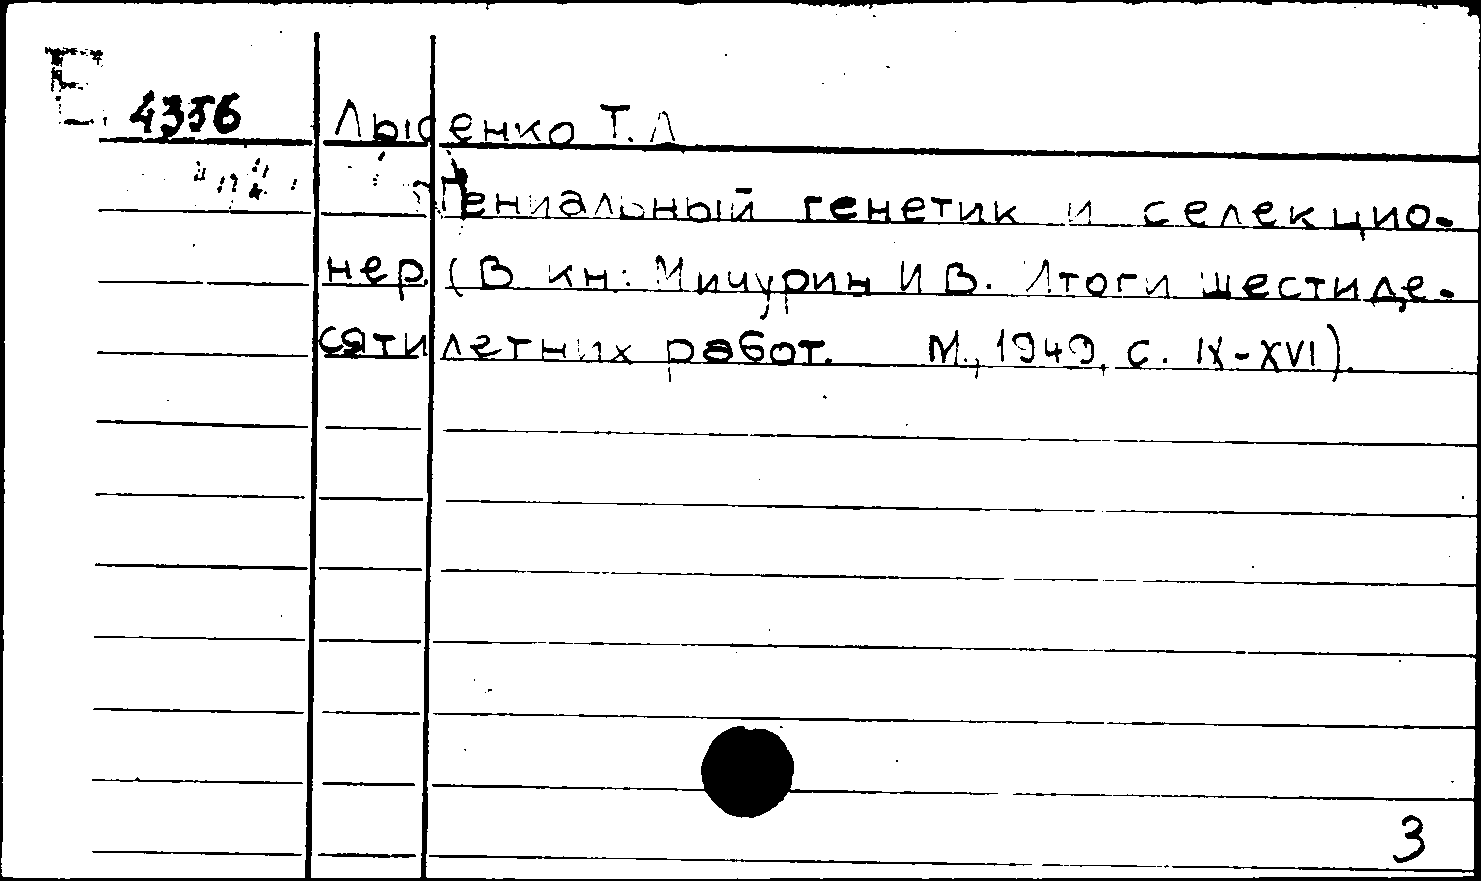 Е 4356 Лысенко Т.Д
Гениальный генетик и селекцио-
нер (В кн: Мичурин И В. Итоги шестиде-
сятилетних работ. М., 1949, с. IX-XVI).
3